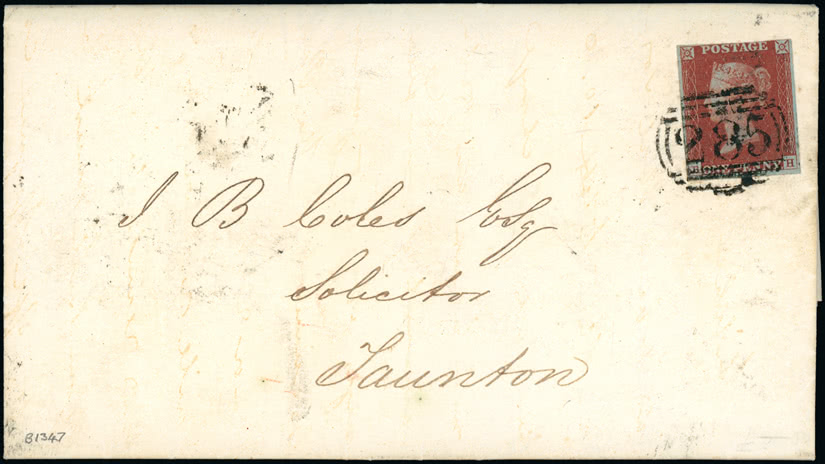 POSTAGE
285
ONE PENNY
H
J B Coles Esq
Solicitor
Taunton
B1347